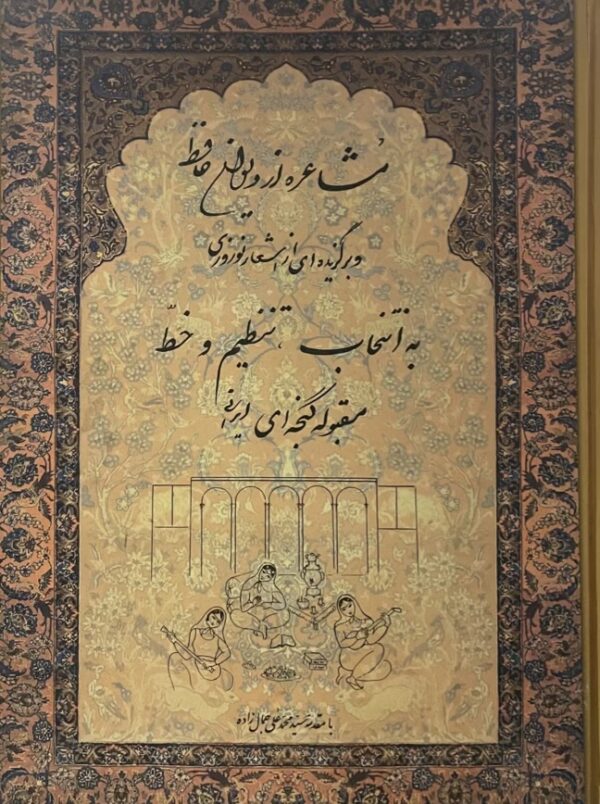 مُشاعره از دیوان حافظ
و برگزیده‌ای از اشعار نوروزی
به انتخاب ، تنظیم و خطّ
مقبوله گنجه‌ای ایرانی
با مقدمه سید محمد علی جمال زاده